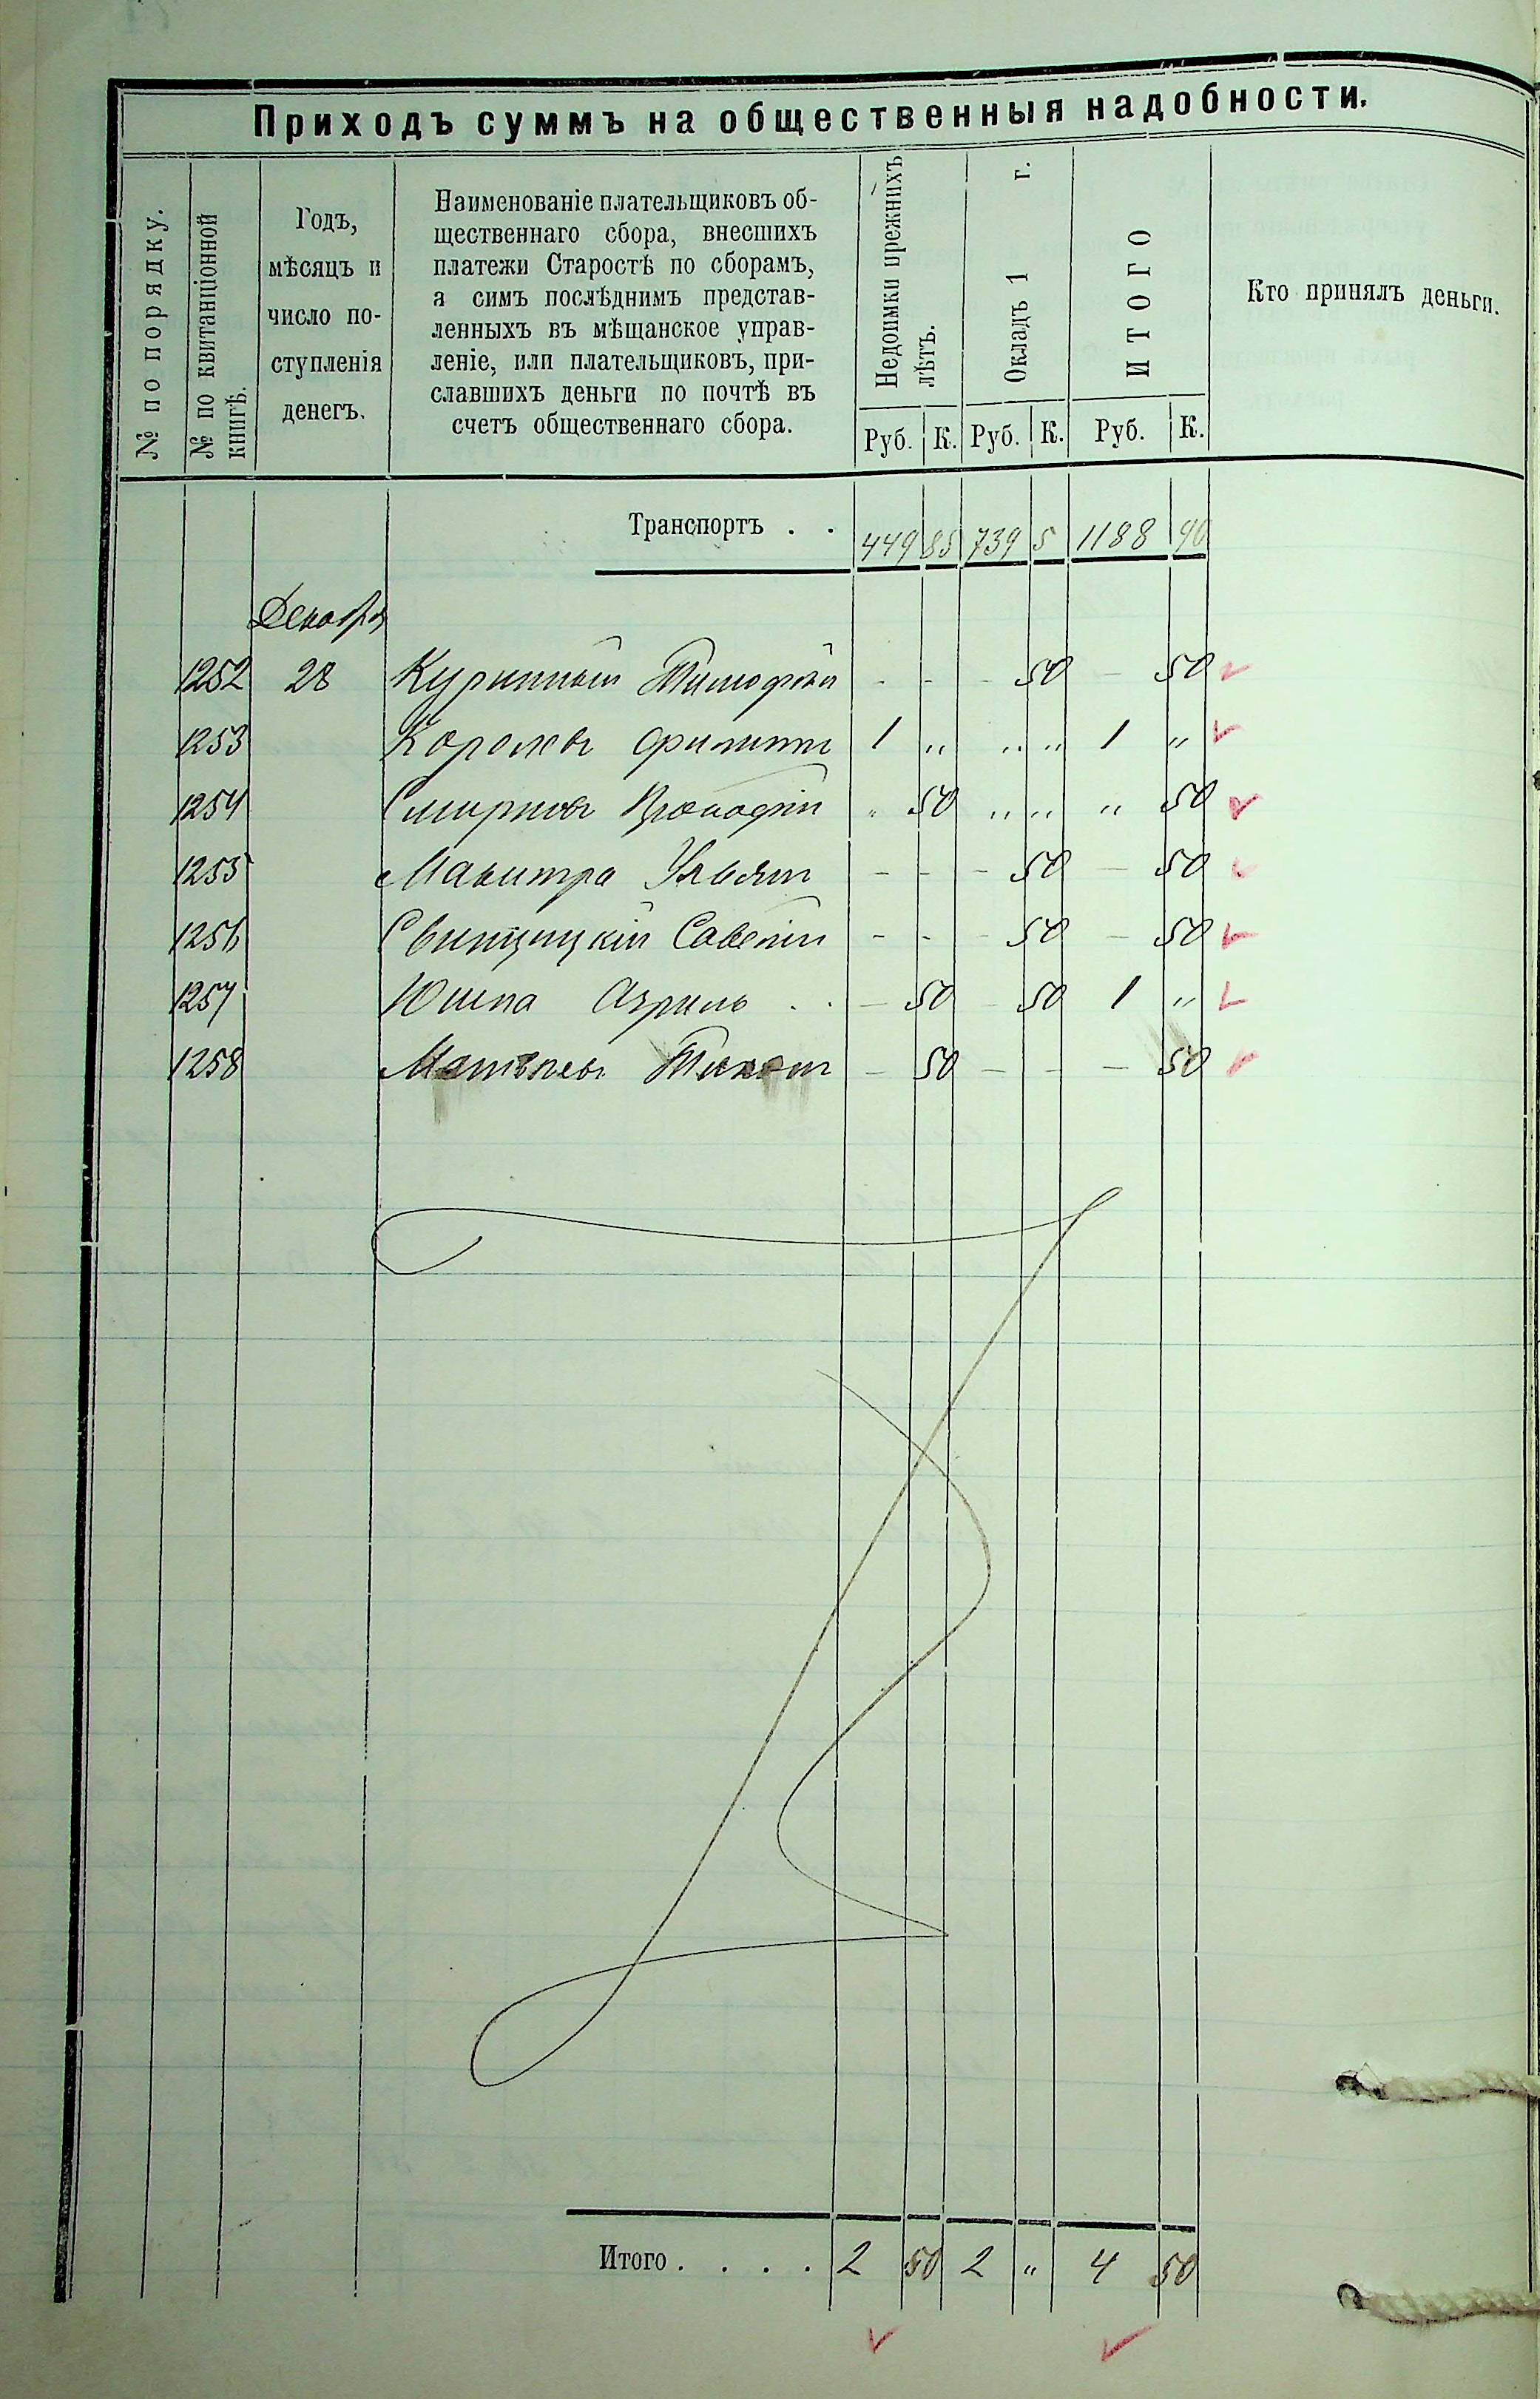 Приходъ суммъ на общественныя надобности.
№ по порядку.
№ по квитанціонной
книгѣ.
Годъ,
мѣсяцъ и
число по-
ступленія
денегъ.
Наименованіе плательщиковъ об-
щественнаго сбора, внесшихъ
платежи Старостѣ по сборамъ,
а симъ послѣднимъ представ-
ленныхъ въ мѣщанское управ-
леніе, или плательщиковъ, при-
славшихъ деньги по почтѣ въ
счетъ общественнаго сбора.
Недоимки прежнихъ
лѣтъ.
Окладъ 1 г.
ИТОГО
Кто принялъ деньги.
Руб. К. Руб. К. Руб. К.
Транспортъ . . 449 85 739 5 1188 90
Декабря
1252 28 Куринный Тимофей - - - 50 - 50
1253 Королевъ Филиппъ 1 „ „ „ 1 „
1254 Смирновъ Прокофій „ 50 „ „ „ 50
1255 Ульянъ - - - 50 - 50
1256 Свинцицкій - - - 50 - 50
1257 Юшпа Азриль . . - 50 - 50 1 „
1258 - 50 - - - 50
Итого . . . . 2 50 2 „ 4 50